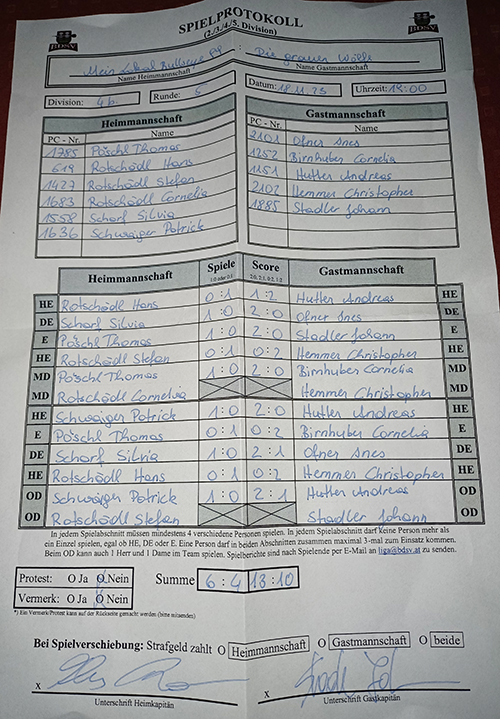 SPIELPROTOKOLL
(2./3./4./5. Division)
BDSV
BDSV
Mein Lokal Bullseye : Die grauen Wölfe
Name Heimmannschaft Name Gastmannschaft
Division: 4b Runde: 5 Datum: 18.11.23 Uhrzeit: 14:00
Heimmannschaft
PC - Nr. Name
1785 Pöschl Thomas
619 Rotschädl Hans
1427 Rotschädl Stefan
1683 Rotschädl Cornelia
1558 Scharf Silvia
1636 Schwaiger Patrick
Gastmannschaft
PC - Nr. Name
2101 Ofner Ines
1252 Birnhuber Cornelia
1151 Hutler Andreas
2102 Hemmer Christopher
1885 Stadler Johann
Heimmannschaft Spiele Score Gastmannschaft
1:0 oder 0:1 2:0, 2:1, 0:2, 1:2
HE Rotschädl Hans 0:1 1:2 Hutler Andreas HE
DE Scharf Silvia 1:0 2:0 Ofner Ines DE
E Pöschl Thomas 1:0 2:0 Stadler Johann E
HE Rotschädl Stefan 0:1 0:2 Hemmer Christopher HE
MD Pöschl Thomas 1:0 2:0 Birnhuber Cornelia MD
MD Rotschädl Cornelia Hemmer Christopher MD
HE Schwaiger Patrick 1:0 2:0 Hutler Andreas HE
E Pöschl Thomas 0:1 0:2 Birnhuber Cornelia E
DE Scharf Silvia 1:0 2:1 Ofner Ines DE
HE Rotschädl Hans 0:1 0:2 Hemmer Christopher HE
OD Schwaiger Patrick 1:0 2:1 Hutler Andreas OD
OD Rotschädl Stefan Stadler Johann OD
In jedem Spielabschnitt müssen mindestens 4 verschiedene Personen spielen. In jedem Spielabschnitt darf keine Person mehr als
ein Einzel spielen, egal ob HE, DE oder E. Eine Person darf in beiden Abschnitten zusammen maximal 3-mal zum Einsatz kommen.
Beim OD kann auch 1 Herr und 1 Dame im Team spielen. Spielberichte sind nach Spielende per E-Mail an liga@bdsv.at zu senden.
Protest: O Ja O Nein Summe 6:4 13:10
Vermerk: O Ja O Nein
*) Ein Vermerk/Protest kann auf der Rückseite gemacht werden (bitte mitsenden)
Bei Spielverschiebung: Strafgeld zahlt O Heimmannschaft O Gastmannschaft O beide
X X
Unterschrift Heimkapitän Unterschrift Gastkapitän